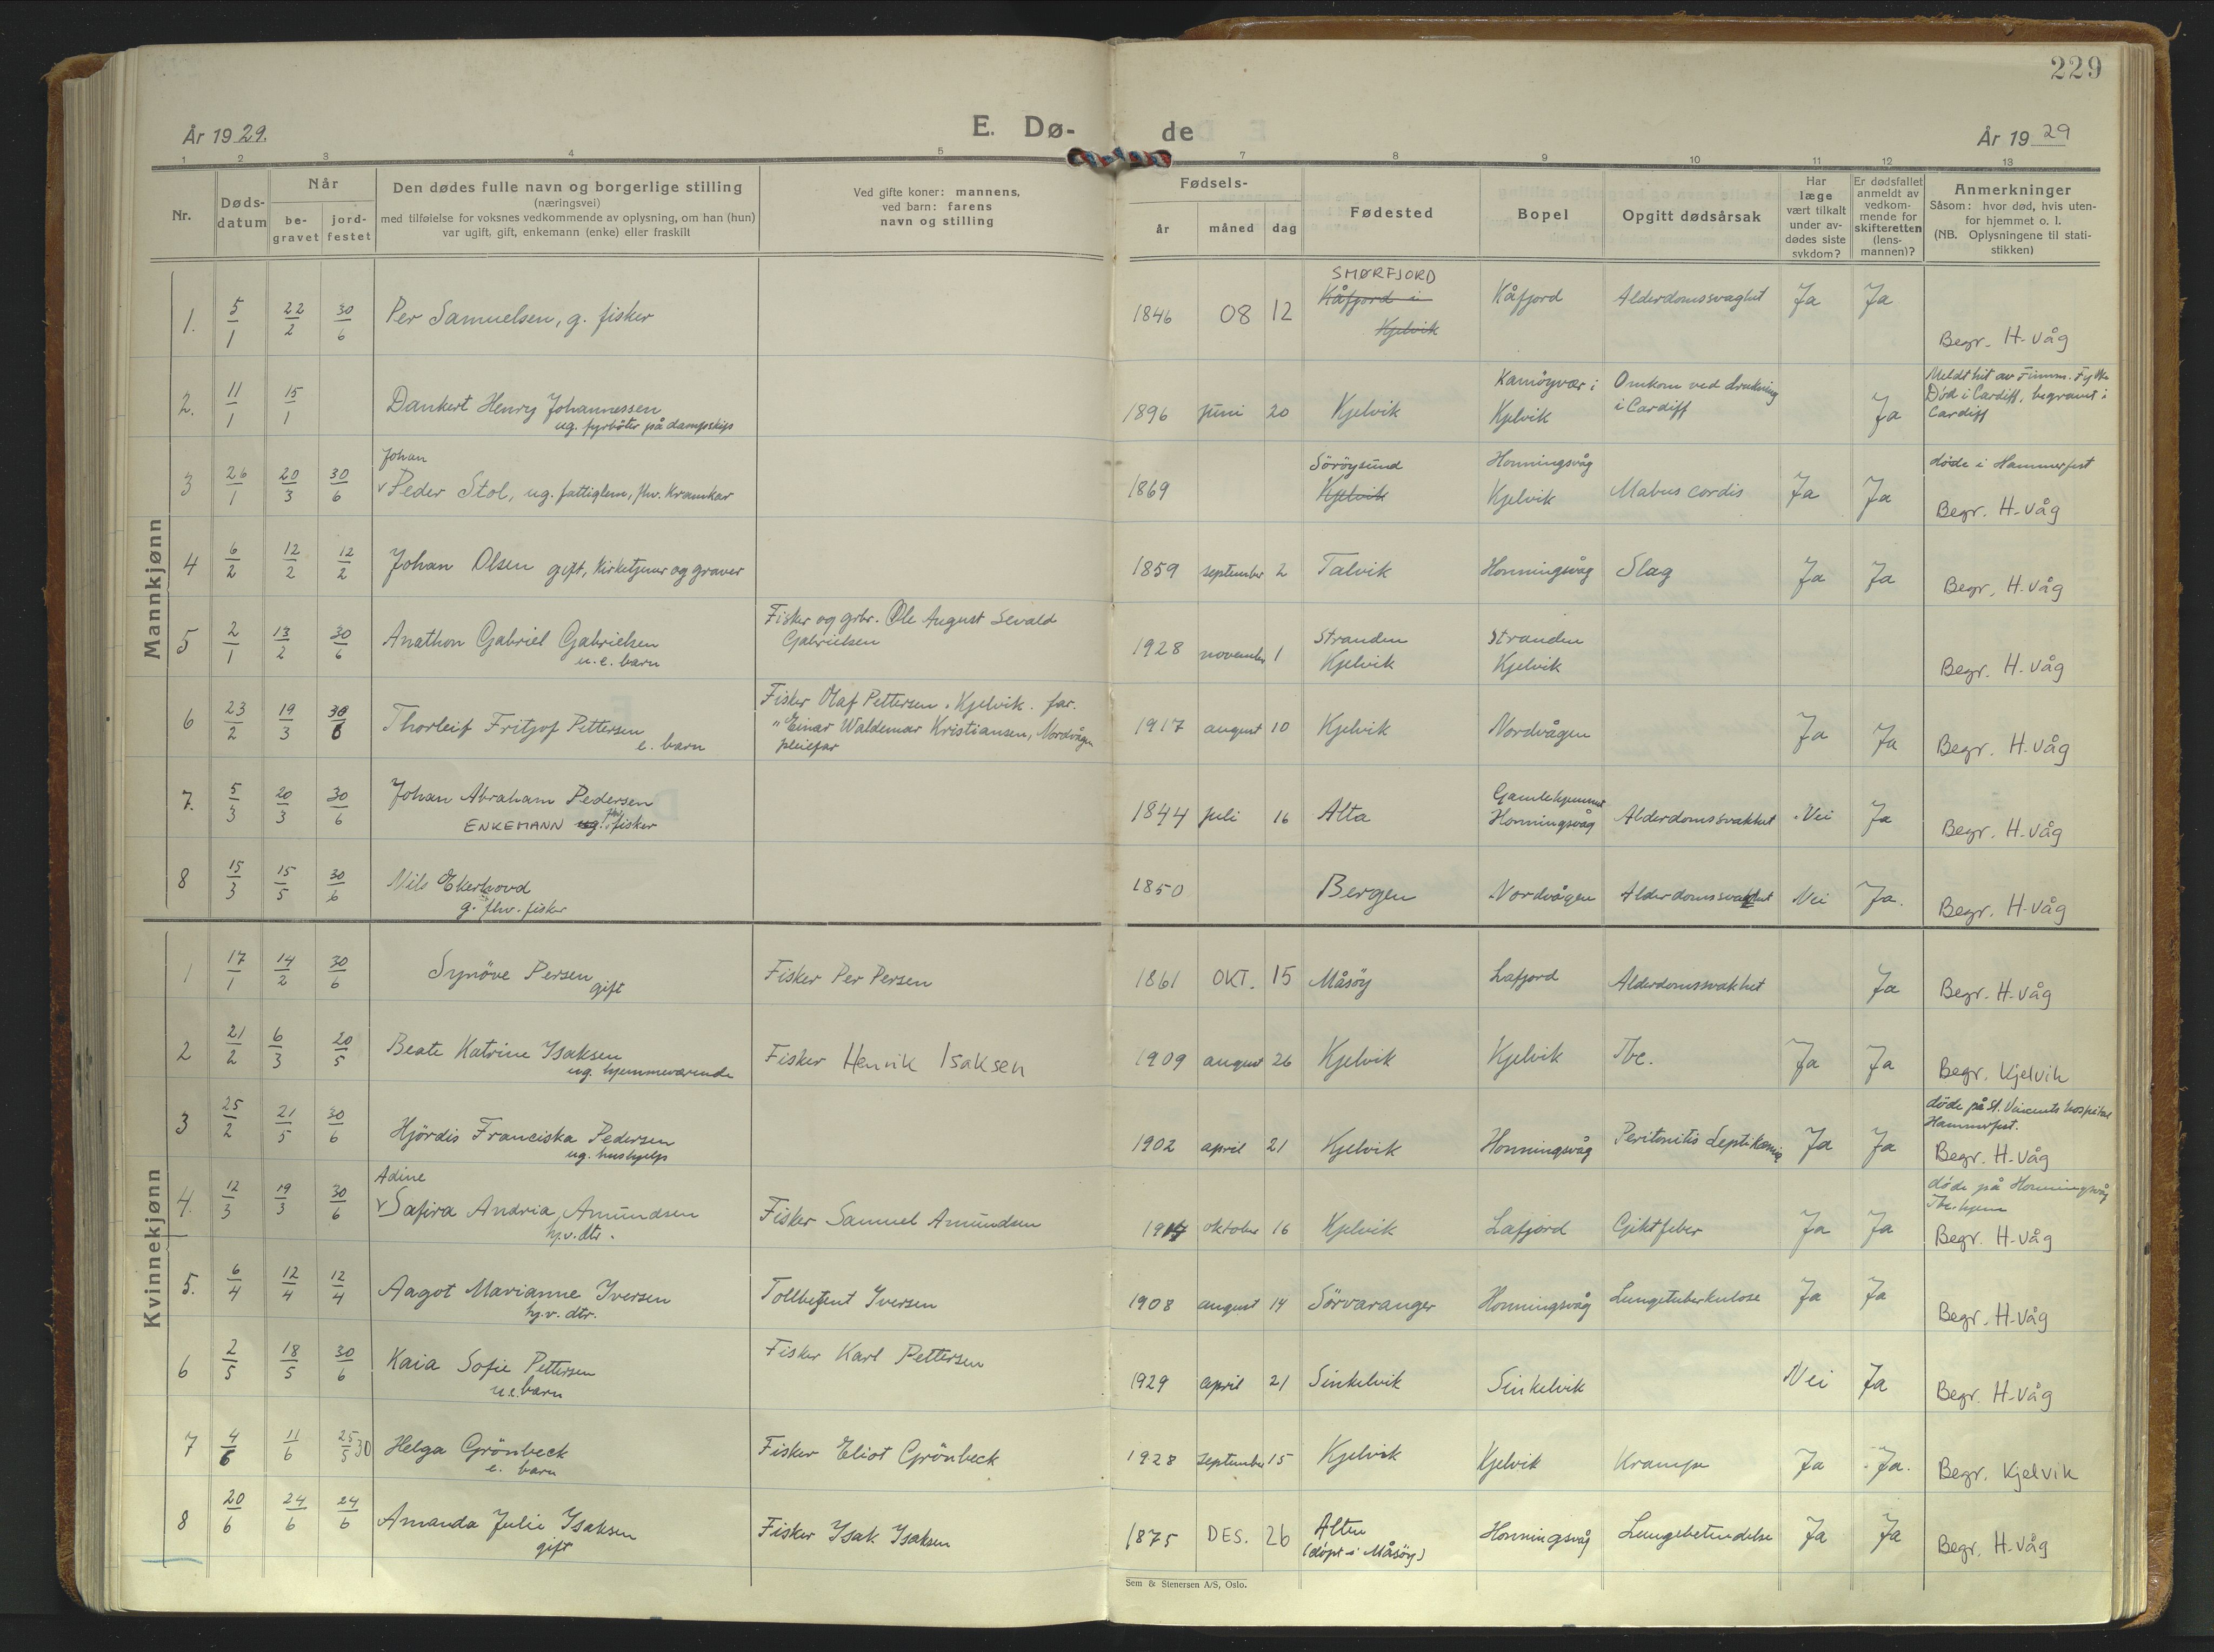 229
År 1929.
E. Dø-
de
År 1929
1 2 3 4 5 7 8 9 10 11 12 13
Nr.
Døds-
datum
Når
be-
gravet
jord-
festet
Den dødes fulle navn og borgerlige stilling
(næringsvei)
med tilføielse for voksnes vedkommende av oplysning, om han (hun)
var ugift, gift, enkemann (enke) eller fraskilt
Ved gifte koner: mannens,
ved barn: farens
navn og stilling
Fødsels-
år
måned
dag
Fødested
Bopel
Opgitt dødsårsak
Har
læge
vært tilkalt
under av-
dødes siste
sykdom?
Er dødsfallet
anmeldt av
vedkom-
mende for
skifteretten
(lens-
mannen)?
Anmerkninger
Såsom: hvor død, hvis uten-
for hjemmet o. l.
(NB. Oplysningene til stati-
stikken)
Mannkjønn
1. 5/1 22/2 30/6 Per Samuelsen, g. fisker 1846 08 12
SMØRFJORD
Kåfjord i
Kjelvik
Kåfjord Alderdomssvaghet Ja Ja
Begr. H-våg
2. 11/1 15/1 Dankert Henry Johannessen
ug. fyrbøter på dampskip
1896 juni 20 Kjelvik
Kamøyvær i
Kjelvik
Omkom ved drukning
i Cardiff
Ja
Meldt hit av Finnm. Fylke
Död i Cardiff, begravet i
Cardiff
3 26/1 20/3 30/6
Johan
√Peder Stol, ug. fattiglem, fhv. Kramkar
1869
Söröysund
Kjelvik
Honningsvåg
Kjelvik
Mabus cordis Ja Ja
døde i Hammerfest
Begr. H-våg
4 6/2 12/2 12/2 Johan Olsen gift, Kirketjener og graver
1859 september 2 Talvik Honningsvåg Slag Ja Ja
Begr, H-våg
5 2/1 13/2 30/6 Anathon Gabriel Gabrielsen
u.e. barn
Fisker og grbr. Ole August Sevald
Gabrielsen
1928 november 1
Stranden
Kjelvik
Stranden
Kjelvik
Begr. H-våg
6 23/2 19/3 30/6 Thorleif Fritjof Pettersen
e. barn
Fisker Olaf Pettersen. Kjelvik. far.
" Einar Waldemar Kristiansen, Nordvågen
pleiefar
1917 august 10 Kjelvik Nordvågen Ja Ja
Begr. H-våg
7. 5/3 20/3 30/6 Johan Abraham Pedersen
ENKEMANN ug. fhv. fisker
1844 juli 16 Alta
Gamlehjemmet
Honningsvåg
Alderdomssvakhet Nei Ja
Begr. H-våg
8 15/3 15/5 30/6 Nils Ekerhovd
g. fhv. fisker
1850 Bergen Nordvågen Alderdomssvakhet Nei Ja.
Begr. H-våg
Kvinnekjønn
1 17/1 14/2 30/6 Synöve Persen
gift
Fisker Per Persen
1861 OKT. 15 Måsöy Lafjord Alderdomssvakhet Ja
Begr. H-våg
2 21/2 6/3 20/5 Beate Katrine Isaksen
ug. hjemmeværende
Fisker Henrik Isaksen
1909 august 26 Kjelvik Kjelvik Tbc. Ja Ja
Begr. Kjelvik
3 25/2 21/5 30/6 Hjördis Franciska Pedersen
ug. hushjelp
1902 april 21 Kjelvik Honningsvåg Peritonitis Septikæmie Ja Ja
døde på St. Vincents hospital
Hammerfest.
Begr. H-våg
4. 12/3 19/3 30/6
Adine
√Safira Andria Amundsen
hj.v. dtr.
Fisker Samuel Amundsen
1914 oktober 16 Kjelvik Lafjord Giktfeber Ja Ja
døde på Honningsvåg
Tbc.hjem
Begr. H-våg
5. 6/4 12/4 12/4 Aagot Marianne Iversen
hj.v. dtr.
Tollbetjent Iversen
1908 august 14 Sörvaranger Honningsvåg Lungetuberkulose Ja Ja
Begr. H-våg
6 2/5 18/5 30/6 Kaia Sofie Pettersen
u.e. barn
Fisker Karl Pettersen
1929 april 21 Sinkelvik Sinkelvik Nei Ja
Begr. H-våg
7 4/6 11/6 25/5 30 Helga Grönbeck
e. barn
Fisker Eliot Grönbeck
1928 september 15 Kjelvik Kjelvik Krampe Ja Ja.
Begr. Kjelvik
8 20/6 24/6 24/6 Amanda Julie Isaksen
gift
Fisker Isak Isaksen
1875 DES. 26 Alten
(döpt i Måsöy)
Honningsvåg Lungebetendelse Ja Ja
Begr. H-våg
Sem & Stenersen A/S, Oslo.